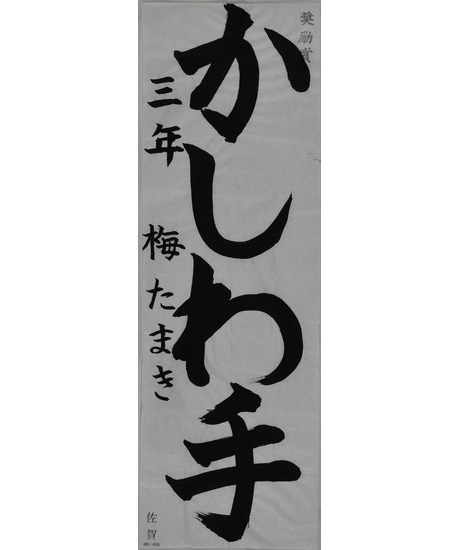 奨励賞
かしわ手
三年 梅たまき
佐賀